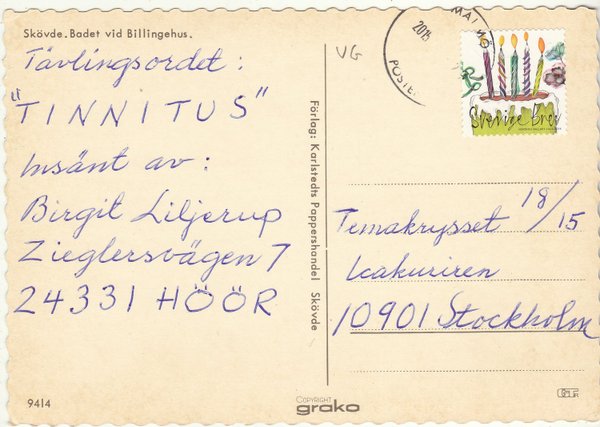 Skövde. Badet vid Billingehus.
Tävlingsordet:
"TINNITUS"
Insänt av:
Birgit Liljerup
Zieglersvägen 7
24331 HÖÖR
9414
Förlag: Karlstedts Pappershandel Skövde
COPYRIGHT
grako
VG
MALMÖ
2015
POSTEN
Sverige Brev
Temakrysset 18/15
Icakuriren
10901 Stockholm